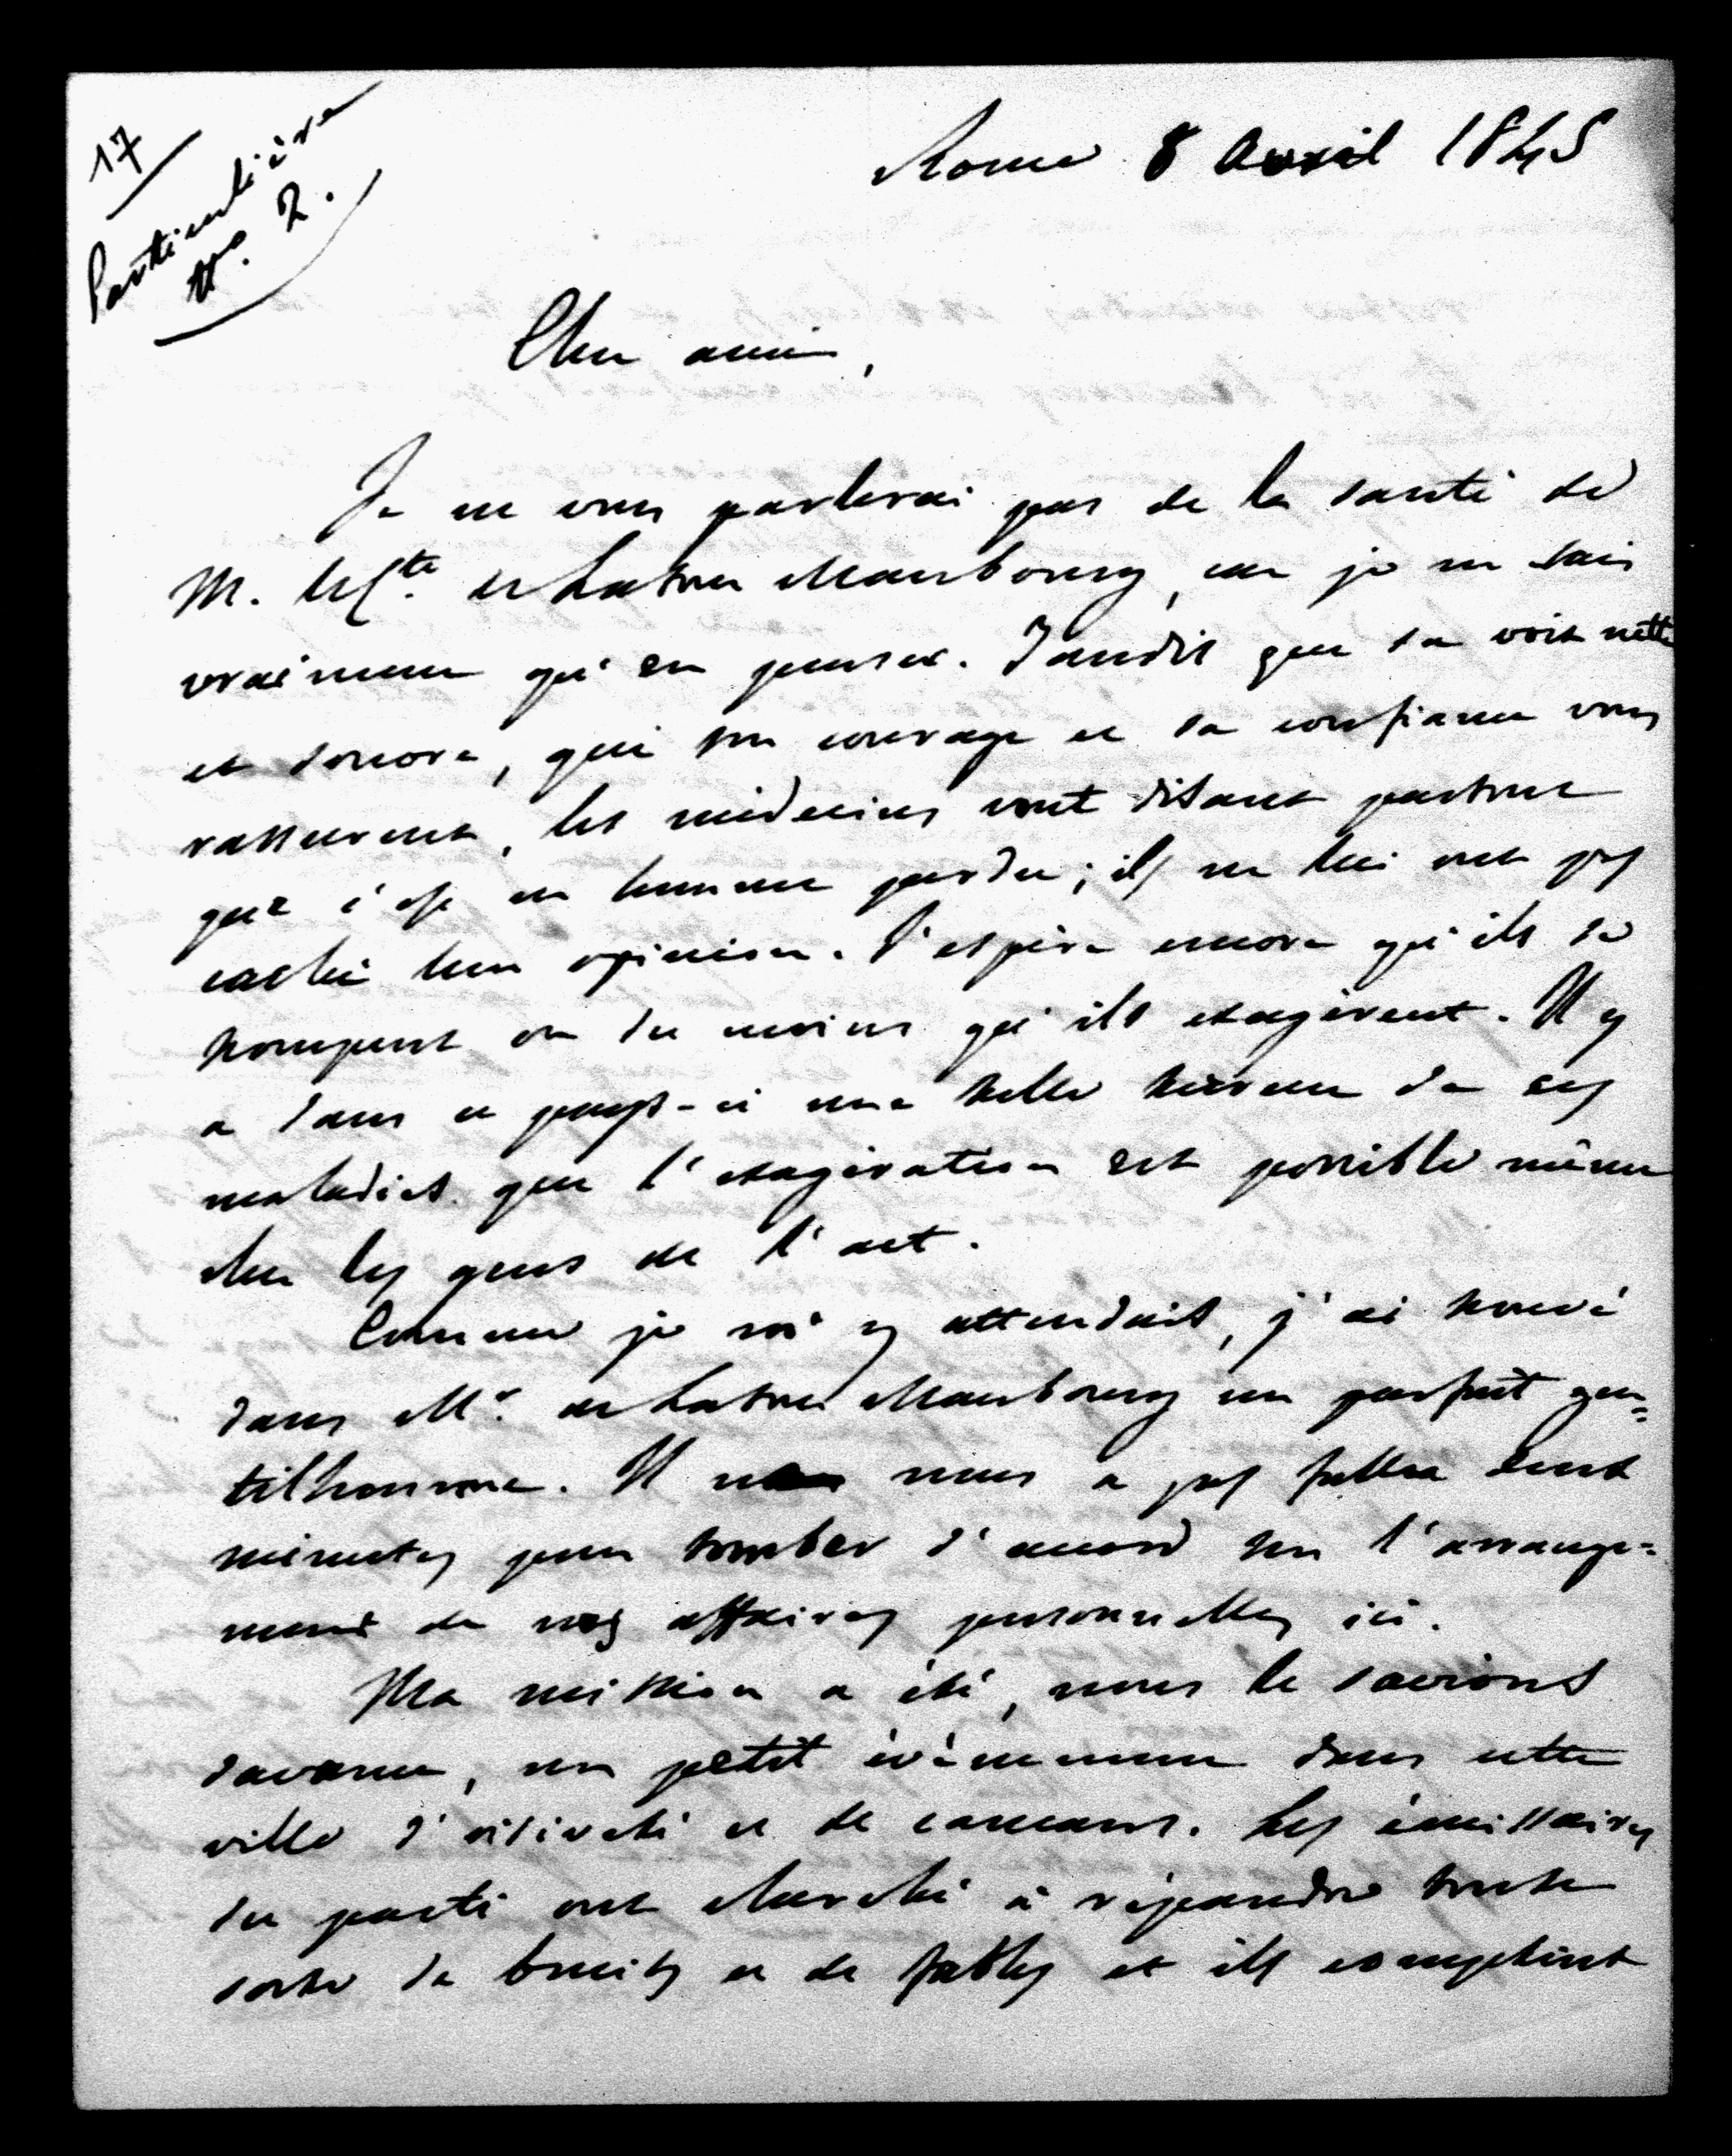 17
Particulière
No. 2.
Rome 8 Avril 1845
Cher ami,
Je ne vous parlerai pas de la santé de
M. le Cte. de Latour Maubourg, car je ne sais
vraiment qu'en penser. Tandis que sa voix nette
et sonore, que son courage et sa confiance vous
rassurent, les médecins vont disant partout
que c'est un homme perdu ; ils ne lui ont pas
caché leur opinion. J'espère encore qu'ils se
trompent ou du moins qu'ils exagèrent. Il y
a dans ce pays-ci une telle terreur de ces
maladies que l'exagération est possible même
chez les gens de l'art.
Comme je m'y attendais, j'ai trouvé
dans Mr. de Latour Maubourg un parfait gen=
tilhomme. Il nous a pas fallu deux
minutes pour tomber d'accord sur l'arrange=
ment de nos affaires personnelles ici.
Ma mission a été, nous le savions
davance, un petit évènement dans cette
ville d'oisiveté et de cancans. Les émissaires
du parti ont cherché à répandre toute
sorte de bruits et de fables et ils comptent